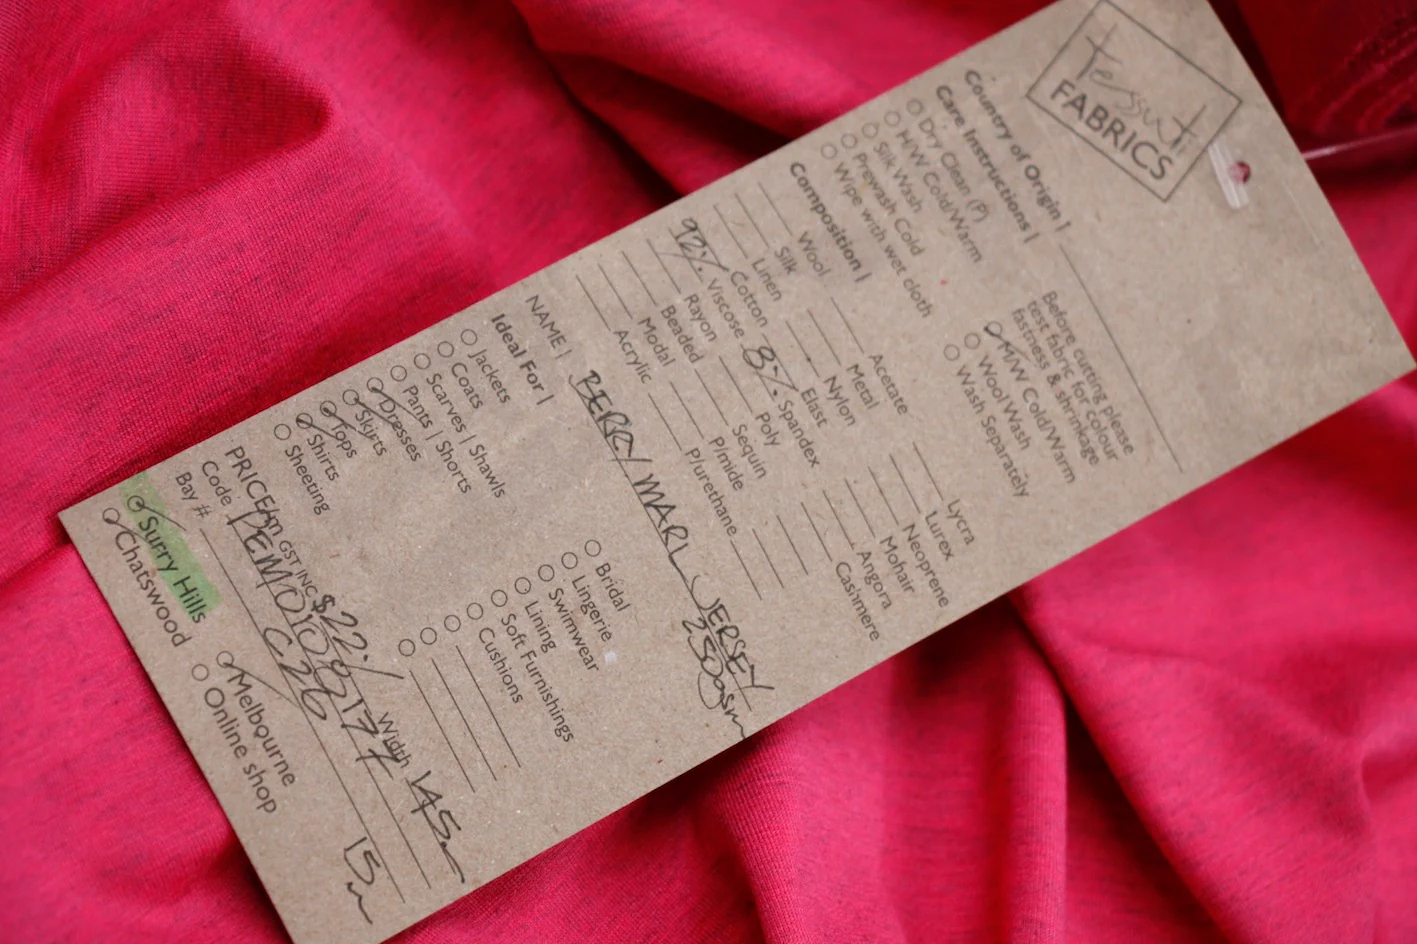 Tessuti
FABRICS
Country of Origin |
Care Instructions |
Dry Clean (P)
H/W Cold/Warm
Silk Wash
Prewash Cold
Wipe with wet cloth
Before cutting please
test fabric for colour
fastness & shrinkage
M/W Cold/Warm
Wool Wash
Wash Separately
Composition |
Wool Acetate Lycra
Silk Metal Lurex
Linen Nylon Neoprene
Cotton Elast Mohair
92% Viscose 8% Spandex Angora
Rayon Poly Cashmere
Beaded Sequin
Modal P/mide
Acrylic P/urethane
NAME | BERRY MARL JERSEY
250gsm
Ideal For |
Jackets
Coats
Scarves | Shawls
Pants | Shorts
Dresses
Skirts
Tops
Shirts
Sheeting
Bridal
Lingerie
Swimwear
Lining
Soft Furnishings
Cushions
PRICE/m GST INC $22./ Width 145cm
Code
Bay # C26 15m
Surry Hills
Chatswood
Melbourne
Online shop